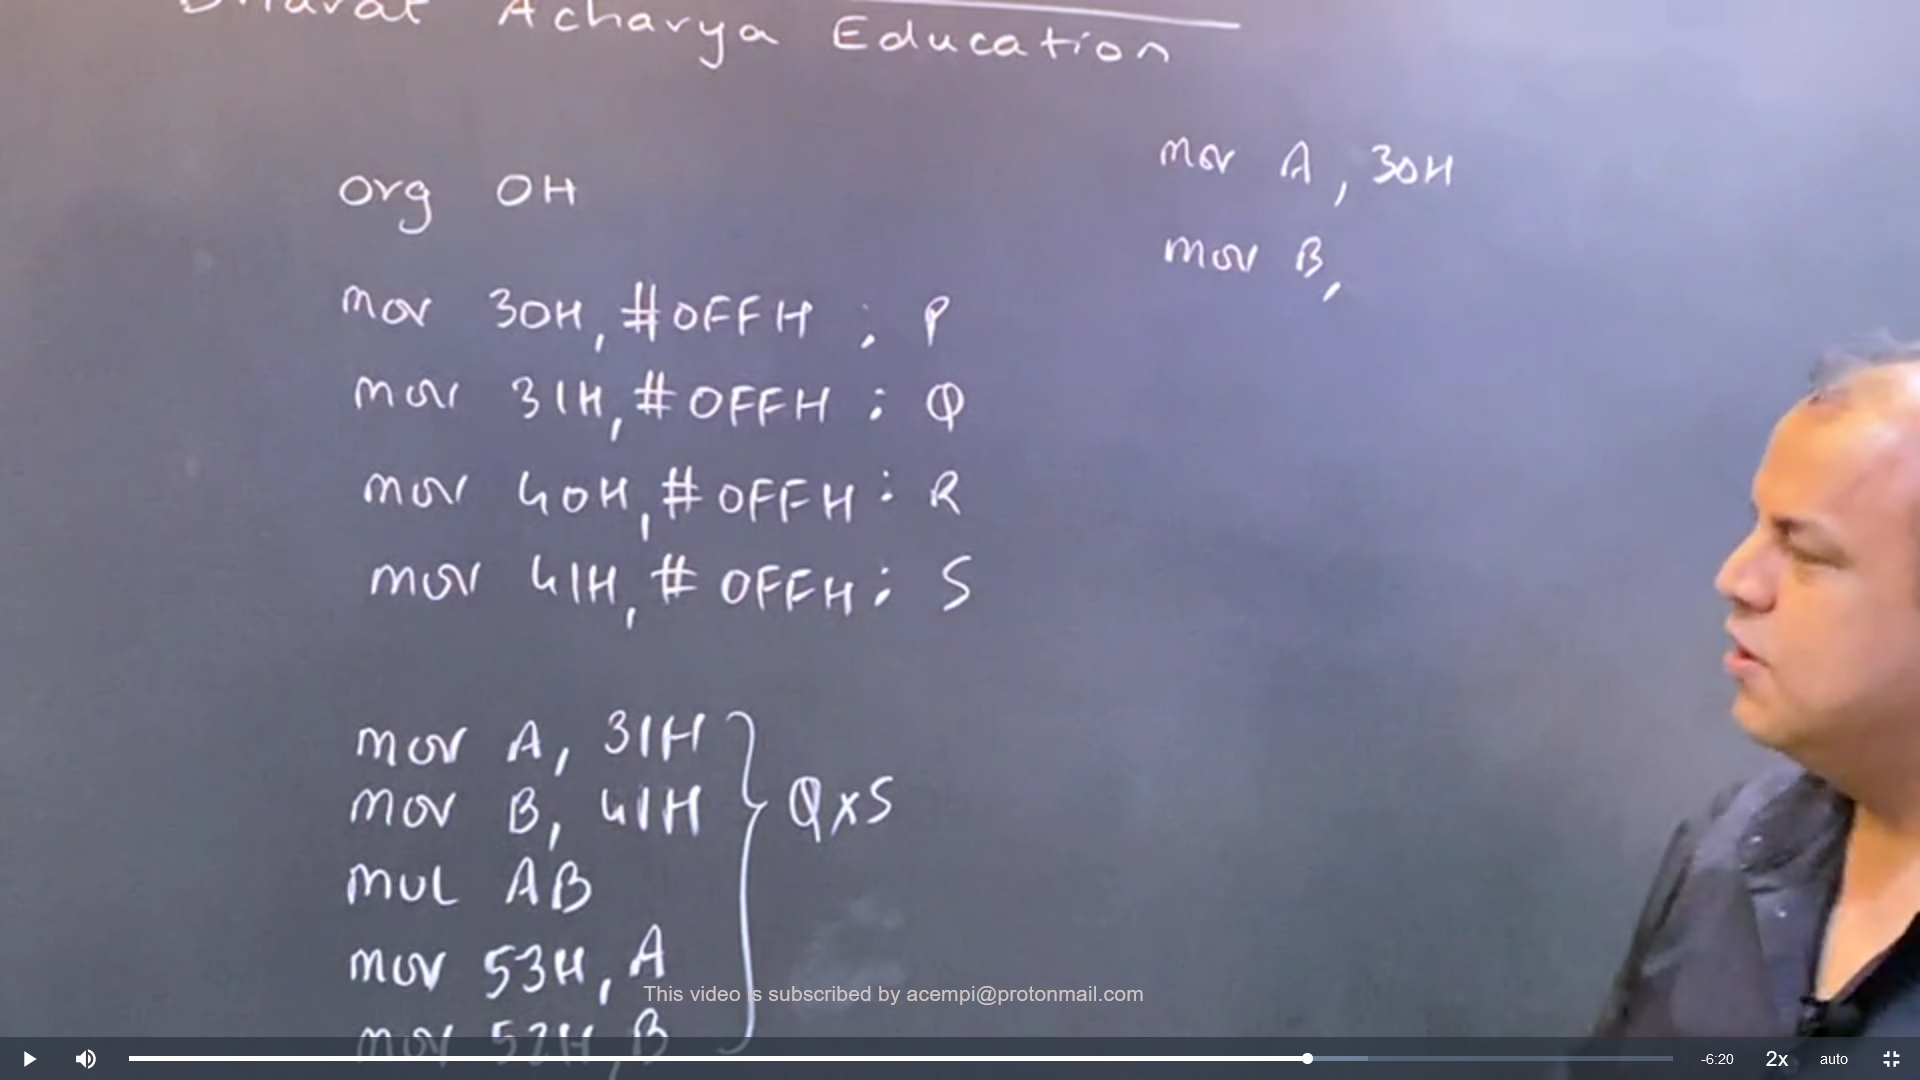 Bharat Acharya Education
org 0H
mov 30H, #0FFH ; P
mov 31H, #0FFH ; Q
mov 40H, #0FFH : R
mov 41H, #0FFH ; S
mov A, 31H
mov B, 41H
QxS
mul AB
mov 53H, A
mov 52H, B
mov A, 30H
mov B,
This video is subscribed by acempi@protonmail.com
-6:20
2x
auto